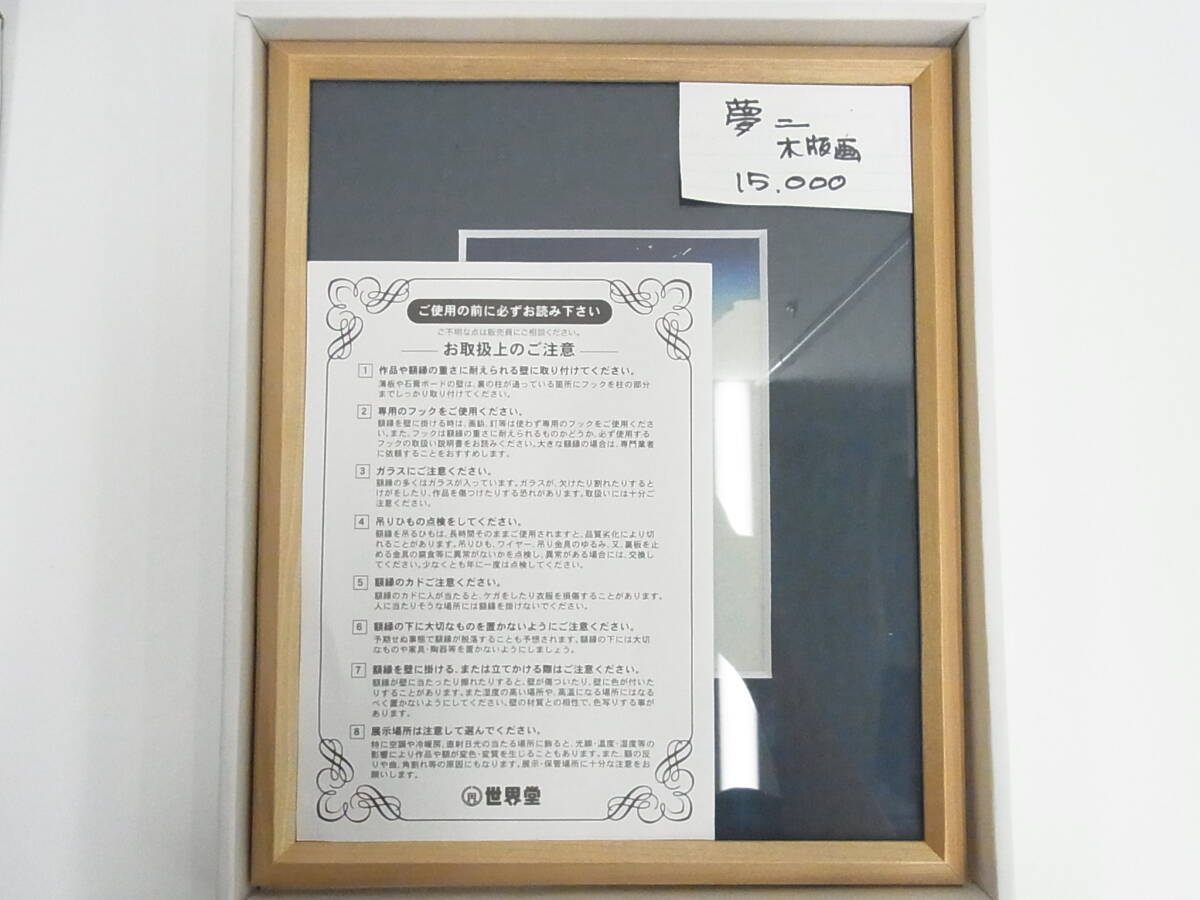 夢二
木版画
15.000
ご使用の前に必ずお読み下さい
ご不明な点は販売員にご相談ください。
お取扱上のご注意
1 作品や額縁の重さに耐えられる壁に取り付けてください。
薄板や石膏ボードの壁は、裏の柱が通っている箇所にフックを柱の部分
までしっかり取り付けてください。
2 専用のフックをご使用ください。
額縁を壁に掛ける時は、画鋲、釘等は使わず専用のフックをご使用くださ
い。また、フックは額縁の重さに耐えられるものかどうか、必ず使用する
フックの取扱い説明書をお読みください。大きな額縁の場合は、専門業者
に依頼することをおすすめします。
3 ガラスにご注意ください。
額縁の多くはガラスが入っています。ガラスが、欠けたり割れたりすると
けがをしたり、作品を傷つけたりする恐れがあります。取扱いには十分ご
注意ください。
4 吊りひもの点検をしてください。
額縁を吊るひもは、長時間そのままご使用されますと、品質劣化により切
れることがあります。吊りひも、ワイヤー、吊り金具のゆるみ、又、裏板を止
める金具の腐食等に異常がないかを点検し、異常がある場合には、交換し
てください。少なくとも年に一度は点検してください。
5 額縁のカドご注意ください。
額縁のカドに人が当たると、ケガをしたり衣服を損傷することがあります。
人に当たりそうな場所には額縁を掛けないでください。
6 額縁の下に大切なものを置かないようにご注意ください。
予期せぬ事態で額縁が脱落することも予想されます。額縁の下には大切
なものや家具・陶器等を置かないようにしましょう。
7 額縁を壁に掛ける、または立てかける際はご注意ください。
額縁が壁に当たったり擦れたりすると、壁が傷ついたり、壁に色が付いた
りすることがあります。また湿度の高い場所や、高温になる場所にはなる
べく置かないようにしてください。壁の材質との相性で、色写りする事が
あります。
8 展示場所は注意して選んでください。
特に空調や冷暖房、直射日光の当たる場所に飾ると、光線・温度・湿度等の
影響により作品や額が変色・変質を生じることもあります。また、額の反
りや曲、角割れ等の原因にもなります。展示・保管場所に十分な注意をお
願いします。
世界堂